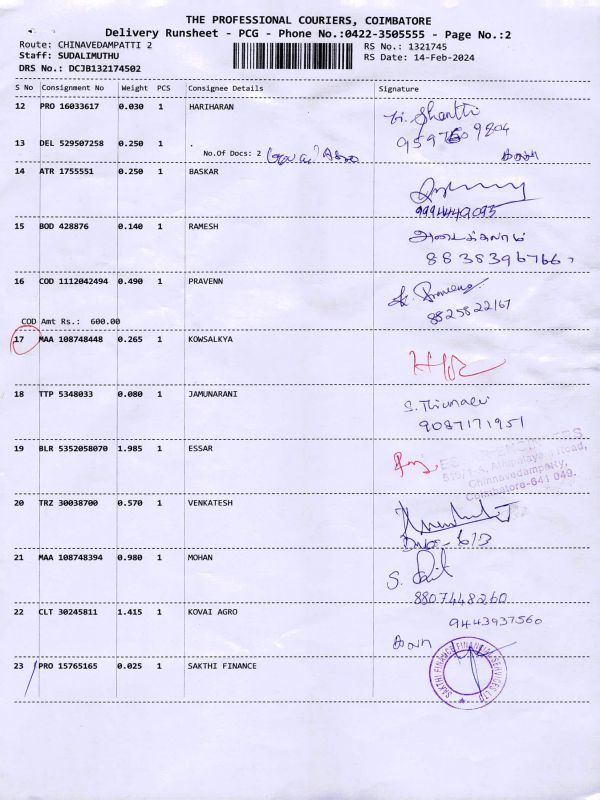 THE PROFESSIONAL COURIERS, COIMBATORE
Delivery Runsheet - PCG - Phone No.:0422-3505555 - Page No.:2
Route: CHINAVEDAMPATTI 2 RS No.: 1321745
Staff: SUDALIMUTHU RS Date: 14-Feb-2024
DRS No.: DCJB132174502
S No Consignment No Weight PCS Consignee Details Signature
12 PRO 16033617 0.030 1 HARIHARAN
13 DEL 529507258 0.250 1 .
No.Of Docs: 2
14 ATR 1755551 0.250 1 BASKAR
9994449093
15 BOD 428876 0.140 1 RAMESH அடைக்கலம்
8838396766
16 COD 1112042494 0.490 1 PRAVENN
8825822167
COD Amt Rs.: 600.00
17 MAA 108748448 0.265 1 KOWSALKYA
18 TTP 5348033 0.080 1 JAMUNARANI
9087171951
19 BLR 5352058070 1.985 1 ESSAR
Chinnavedampatty,
Coimbatore-641 049.
20 TRZ 30038700 0.570 1 VENKATESH
21 MAA 108748394 0.980 1 MOHAN
8807448260
22 CLT 30245811 1.415 1 KOVAI AGRO 9443937560
23 PRO 15765165 0.025 1 SAKTHI FINANCE
SAKTHI FINANCE FINANCIAL SERVICES LTD